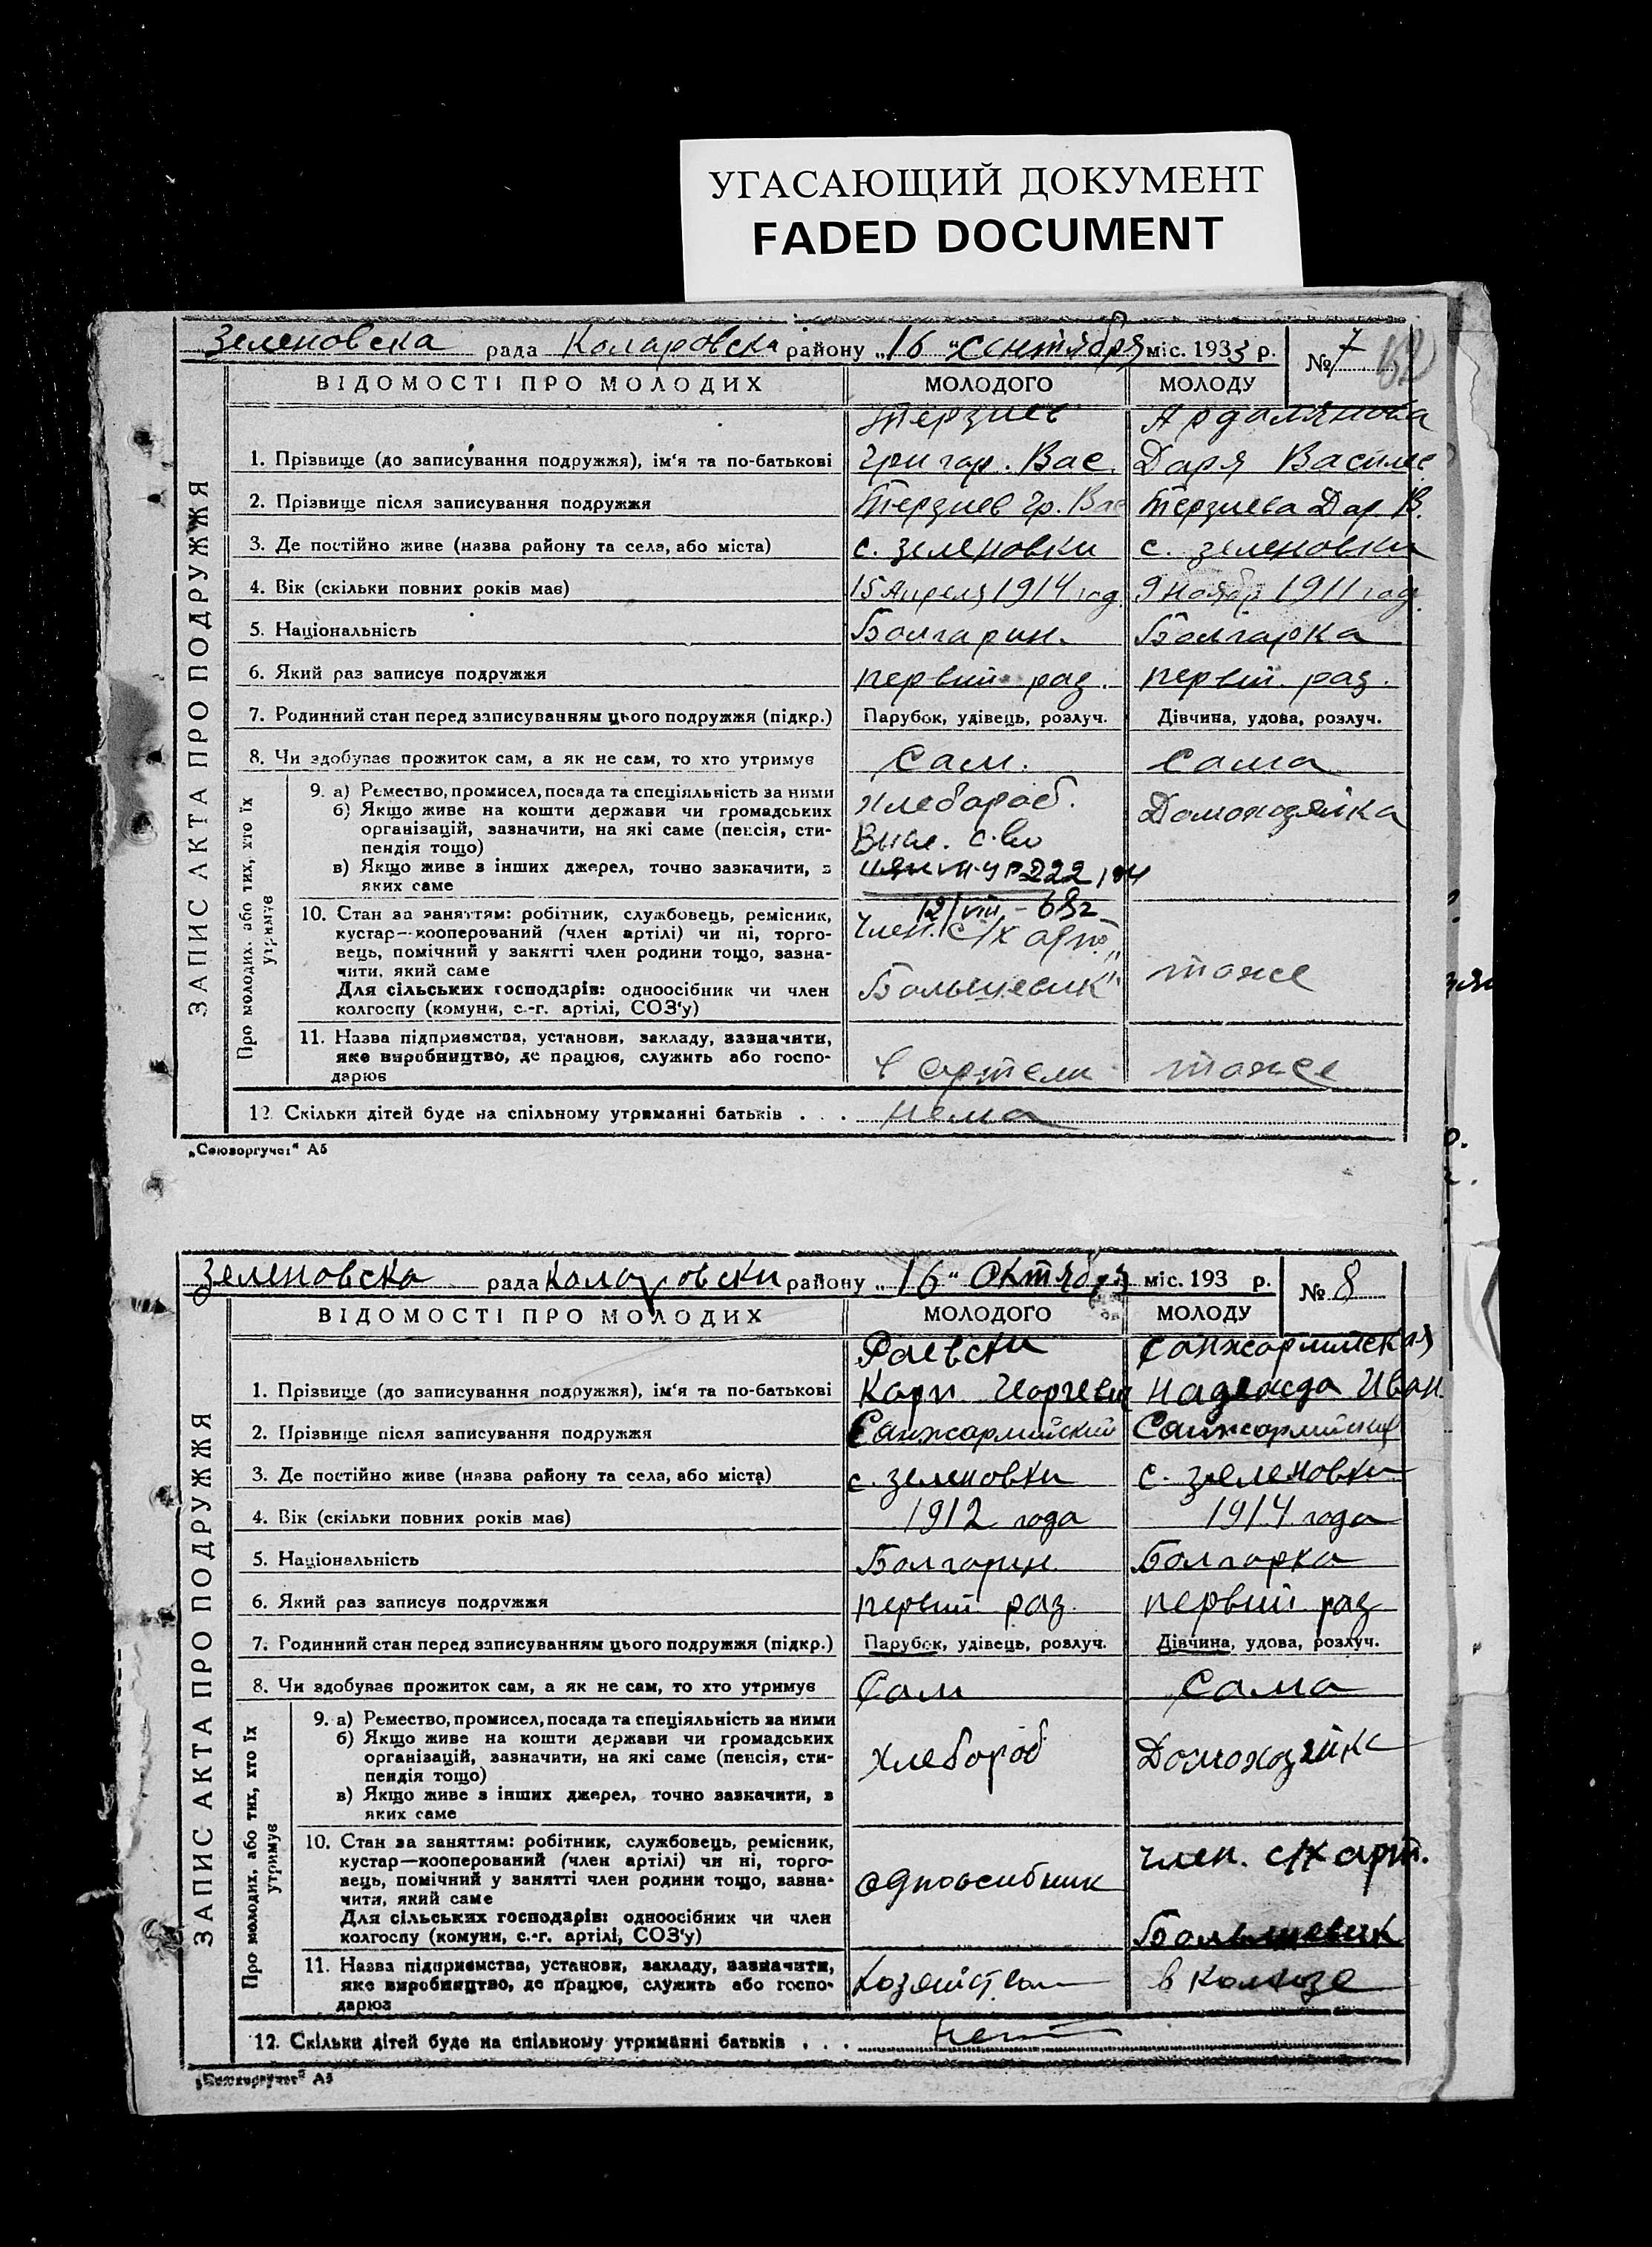 УГАСАЮЩИЙ ДОКУМЕНТ
FADED DOCUMENT
Зеленовска рада Коларовска району „16“ сентября міс. 1933 р. № 7
ВІДОМОСТІ ПРО МОЛОДИХ МОЛОДОГО МОЛОДУ
Терзиев
1. Прізвище (до записування подружжя), ім‘я та по-батькові Григор. Вас. Даря Василе
2. Прізвище після записування подружжя Терзиев Гр. Вас Терзиева Дар В.
3. Де постійно живе (назва району та села, або міста) с. Зеленовки с. Зеленовки
4. Вік (скільки повних років має) 15 Апреля 1914 год. 9 ноябр 1911 год.
5. Національність Болгарин. Болгарка
6. Який раз записує подружжя первий раз. первий раз.
7. Родинний стан перед записуванням цього подружжя (підкр.) Парубок, удівець, розлуч. Дівчина, удова, розлуч.
8. Чи здобуває прожиток сам, а як не сам, то хто утримує Сам. Сама
ЗАПИС АКТА ПРО ПОДРУЖЖЯ
Про молодих, або тих, хто їх
утримує
9. а) Ремество, промисел, посада та спеціяльність за ними хлебороб. Домохозяйка
б) Якщо живе на кошти держави чи громадських
організацій, зазначити, на які саме (пенсія, сти-
пендія тощо)
в) Якщо живе з інших джерел, точно зазначити, з
яких саме
10. Стан за заняттям: робітник, службовець, ремісник,
кустар—кооперований (член артілі) чи ні, торго- член. с/х арт.
вець, помічний у занятті член родини тощо, зазна-
чити, який саме тоже
Для сільських господарів: одноосібник чи член „Большевик“
колгоспу (комуни, с.-г. артілі, СОЗ‘у)
11. Назва підприємства, установи, закладу, зазначити,
яке виробництво, де працює, служить або госпо- в артели тоже
дарює
12. Скільки дітей буде на спільному утриманні батьків . . . нема
„Союзоргучет“ А5
Зеленовска рада Коларовски району „16“ Октября міс. 193 р. № 8
ВІДОМОСТІ ПРО МОЛОДИХ МОЛОДОГО МОЛОДУ
Раевски Санжармийская
1. Прізвище (до записування подружжя), ім‘я та по-батькові Карп Надежда Иван.
2. Прізвище після записування подружжя Санжармийский
3. Де постійно живе (назва району та села, або міста) с. Зеленовки с. Зеленовки
4. Вік (скільки повних років має) 1912 года 1914 года
5. Національність Болгарин. Болгарка
6. Який раз записує подружжя первий раз. первий раз
7. Родинний стан перед записуванням цього подружжя (підкр.) Парубок, удівець, розлуч. Дівчина, удова, розлуч.
8. Чи здобуває прожиток сам, а як не сам, то хто утримує Сам Сама
ЗАПИС АКТА ПРО ПОДРУЖЖЯ
Про молодих, або тих, хто їх
утримує
9. а) Ремество, промисел, посада та спеціяльність за ними
б) Якщо живе на кошти держави чи громадських хлебороб Домохозяйка
організацій, зазначити, на які саме (пенсія, сти-
пендія тощо)
в) Якщо живе з інших джерел, точно зазначити, з
яких саме
10. Стан за заняттям: робітник, службовець, ремісник, член. с/х арт.
кустар—кооперований (член артілі) чи ні, торго-
вець, помічний у занятті член родини тощо, зазна- одноосибник
чити, який саме
Для сільських господарів: одноосібник чи член Большевик
колгоспу (комуни, с.-г. артілі, СОЗ‘у)
11. Назва підприємства, установи, закладу, зазначити,
яке виробництво, де працює, служить або госпо- в колхозе
дарює
12. Скільки дітей буде на спільному утриманні батьків . . . нет
„Союзоргучет“ А5